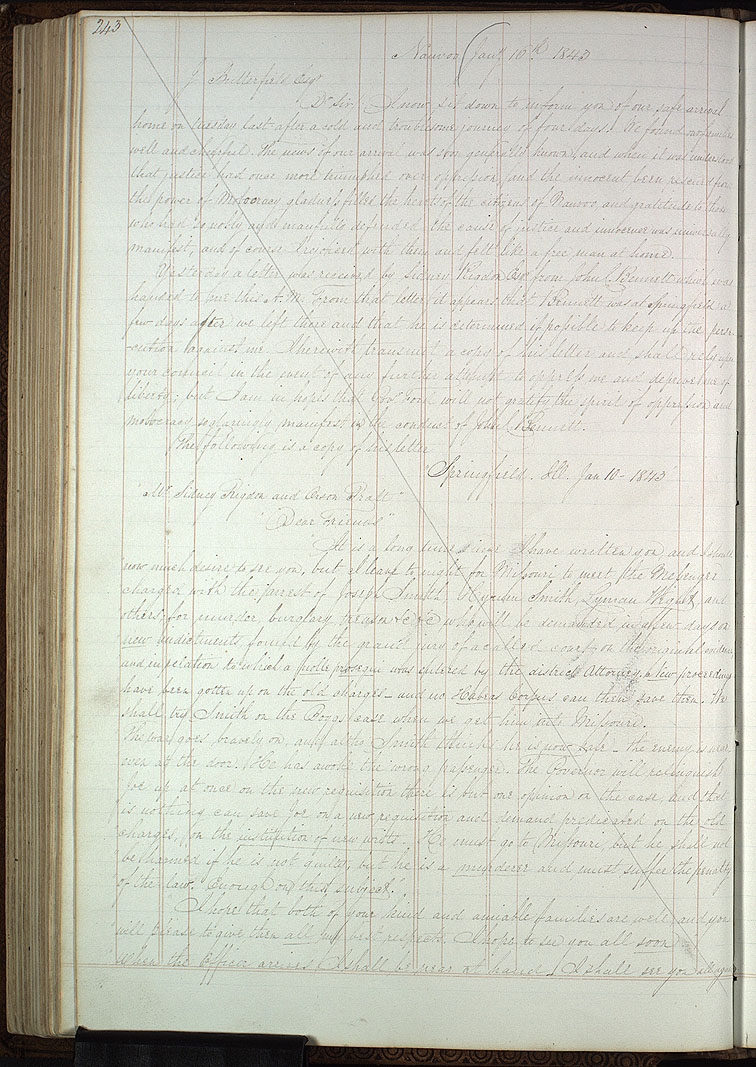 243
Nauvoo Jany. 16th 1843
J Butterfield Esqr
Dr Sir, I now sit down to inform you of our safe arrival
home on Tuesday last after a cold and troublesome journey of four days. We found our families
well and cheerful. The news of our arrival was soon generally known, and when it was understood
that justice had once more triumphed over oppression, and the innocent been rescued from
the power of Mobocracy gladness filled the hearts of the citizens of Nauvoo, and gratitude to those
who had so nobly and manfully defended the cause of justice and innocence was universally
manifest, and of course I rejoiced with them and felt like a free man at home.
Yesterday a letter was received by Sidney Rigdon Esqr from John C. Bennett which was
handed to me this A.M. From that letter it appears that Bennett was at Springfield a
few days after we left there and that he is determined if possible to keep up the perse-
-cution against me. I herewith transmit a copy of his letter and shall rely upon
your council in the event of any further attempt to oppress me and deprive me of
liberty; but I am in hopes that will not gratify the spirit of oppression and
mobocracy so glaringly manifest in the conduct of John C. Bennett.
The following is a copy of his letter
"Springfield Ill. Jan 10- 1843"
"Mr. Sidney Rigdon and Orson Pratt"
"Dear Friends"
It is a long time since I have written you, and I should
now much desire to see you, but I leave to night for Missouri to meet the Messenger
charged with the arrest of Joseph Smith Hyrum Smith, Lyman Wight, and
others, for murder, burglary treason &c &c who will be demanded in a few days on
new indictments found by the grand jury of a called court on the original evidence
and in relation to which a nolle prosequi was entered by the district Attorney. New proceedings
have been gotten up on the old charges— and no Habeas Corpus can then save them. We
shall try Smith on the Boggs case when we get him into Missouri.
The war goes bravely on, and altho Smith thinks he is now safe— the enemy is near
even at the door. He has awoke the wrong passenger. The Governor will relinquish
Joe up at once on the new requisition there is but one opinion on the case, and that
is nothing can save Joe on a new requisition and demand predicated on the old
charges, on the institution of new writs. He must go to Missouri, but he shall not
be harmed if he is not guilty, but he is a murderer and must suffer the penalty
of the law. Enough on this subject.
I hope that both of your kind and amiable families are well and you
will please to give them all my best respects. I hope to see you all soon
when the Officer arrives I shall be near at hand. I shall see you all again